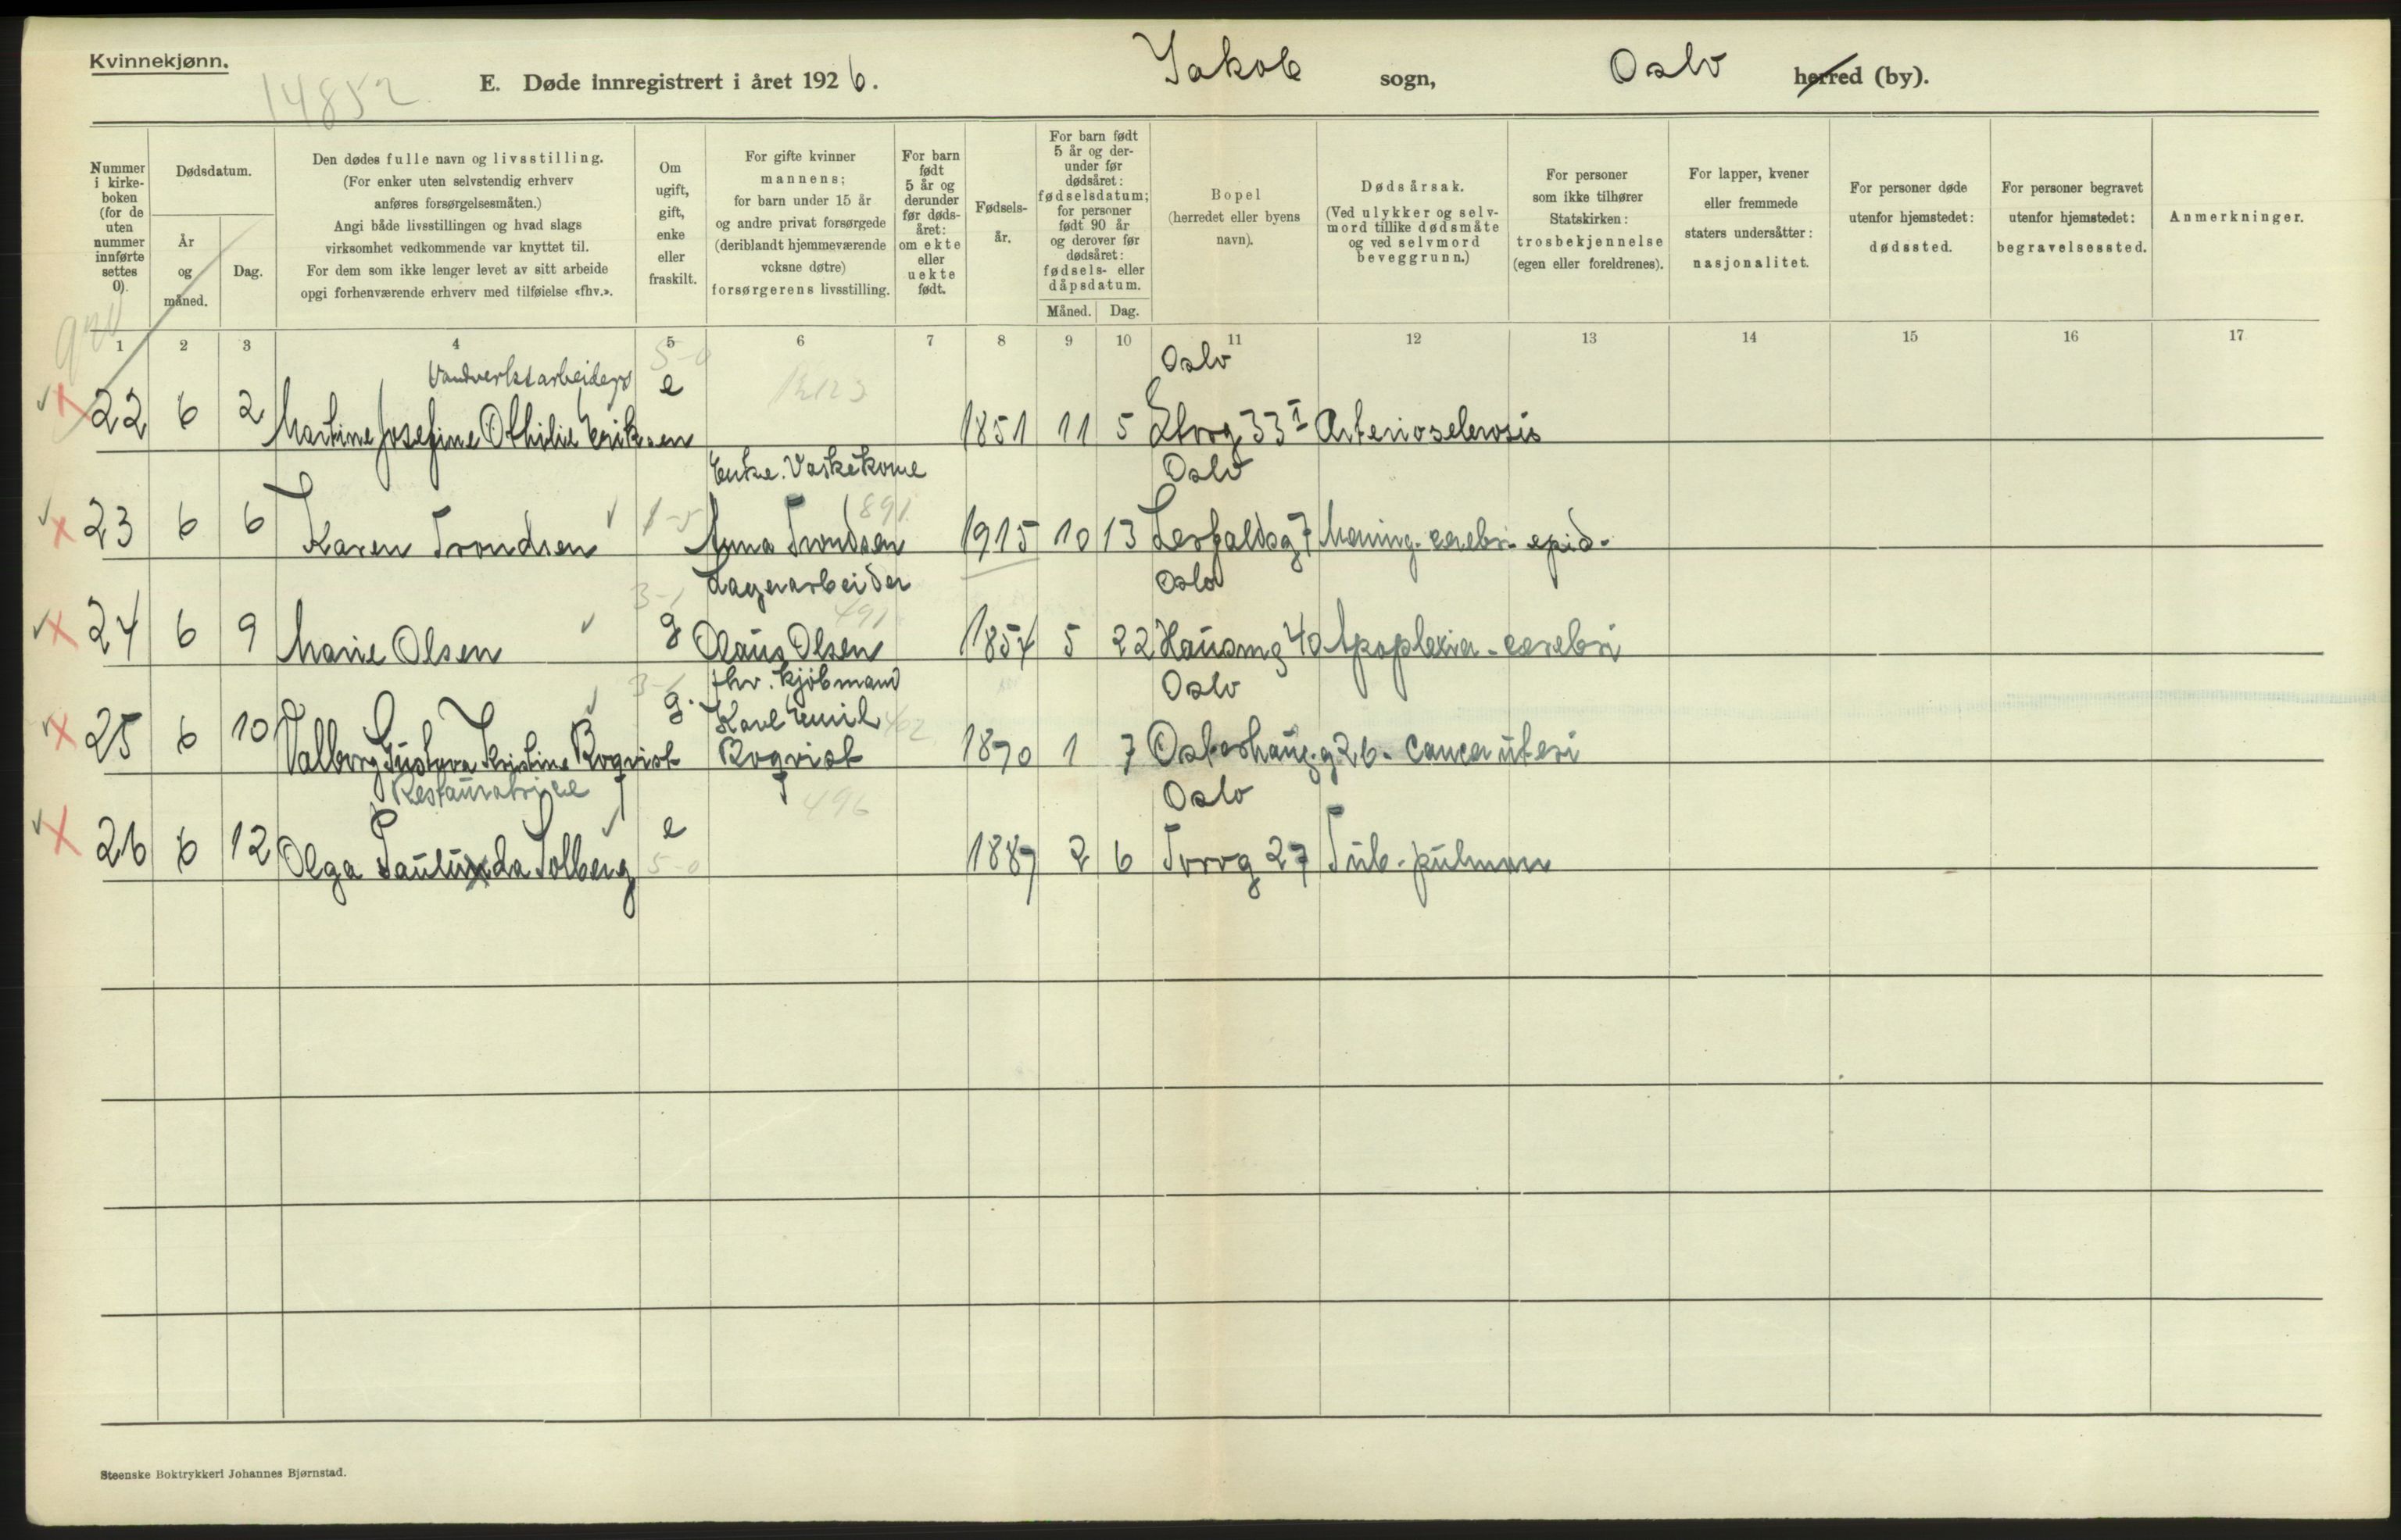 Kvinnekjønn.
14852
E. Døde innregistrert i året 1926. Jakob sogn, Oslo herred (by).
Nummer i kirke-boken (for de uten nummer innførte settes 0).
Dødsdatum.
År og måned.
Dag.
Den dødes fulle navn og livsstilling.
(For enker uten selvstendig erhverv
anføres forsørgelsesmåten.)
Angi både livsstillingen og hvad slags
virksomhet vedkommende var knyttet til.
For dem som ikke lenger levet av sitt arbeide
opgi forhenværende erhverv med tilføielse «fhv.».
Om ugift, gift, enke eller fraskilt.
For gifte kvinner
mannens;
for barn under 15 år
og andre privat forsørgede
(deriblandt hjemmeværende
voksne døtre)
forsørgerens livsstilling.
For barn født 5 år og derunder før døds-året: om ekte eller uekte født.
Fødsels-år.
For barn født 5 år og der-under før dødsåret: fødselsdatum; for personer født 90 år og derover før dødsåret: fødsels- eller dåpsdatum.
Måned. Dag.
Bopel
(herredet eller byens
navn).
Dødsårsak.
(Ved ulykker og selv-
mord tillike dødsmåte
og ved selvmord
beveggrunn.)
For personer
som ikke tilhører
Statskirken:
trosbekjennelse
(egen eller foreldrenes).
For lapper, kvener
eller fremmede
staters undersåtter:
nasjonalitet.
For personer døde
utenfor hjemstedet:
dødssted.
For personer begravet
utenfor hjemstedet:
begravelsessted.
Anmerkninger.
1 2 3 4 5 6 7 8 9 10 11 12 13 14 15 16 17
5-0 Oslo
22 6 2 Martine Josefine Othilie Eriksen e 1851 11 5 Storg 33 I Arterioselerosis
Enke. Vaskekone Oslo
23 6 6 Karen Trondsen 1-5 Anna Trondsen 891 1915 10 13 7 Mening. cerebr. epid.
Lagerarbeider Oslo
24 6 9 Marie Olsen 3-1 g Olaus Olsen 491 1854 5 22 Hausmg 40 Apoplexia-cerebri
fhv. kjøbmand Oslo
25 6 10 Valborg Gustava Kristine Boqvist g. Karl Emil Boqvist 1870 1 7 Osterhaus.g 26. Cancer uteri
Restauratrice 496 Oslo
26 6 12 Olga Paulinda Solberg e 5-0 1887 2 6 Torvg 27 Tub. pulmon
Steenske Boktrykkeri Johannes Bjørnstad.